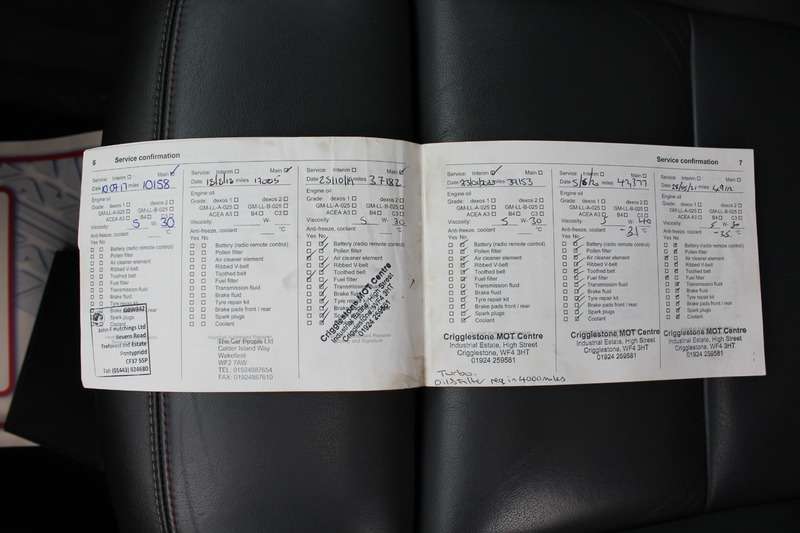 6 Service confirmation
Service: Interim Main
Date 10.07.17 miles 10158
Engine oil
Grade: dexos 1 dexos 2
GM-LL-A-025 GM-LL-B-025
ACEA A3 B4 C3
Viscosity: 5 W- 30
Anti-freeze, coolant °C
Yes No
Battery (radio remote control)
Pollen filter
Air cleaner element
Ribbed V-belt
Toothed belt
Fuel filter
Transmission fluid
Brake fluid
Tyre repair kit
Brake pads front / rear
Spark plugs
Coolant
John F Hutchings Ltd
Severn Road
Treforest Ind Estate
Pontypridd
CF37 5SP
Tel: (01443) 824680
Service: Interim Main
Date miles 17005
Engine oil
Grade: dexos 1 dexos 2
GM-LL-A-025 GM-LL-B-025
ACEA A3 B4 C3
Viscosity: W-
Anti-freeze, coolant °C
Yes No
Battery (radio remote control)
Pollen filter
Air cleaner element
Ribbed V-belt
Toothed belt
Fuel filter
Transmission fluid
Brake fluid
Tyre repair kit
Brake pads front / rear
Spark plugs
Coolant
The Car People Ltd
Calder Island Way
Wakefield
WF2 7AW
TEL: 01924987654
FAX: 01924867610
Service: Interim Main
Date 23/10/19 miles 37182
Engine oil
Grade: dexos 1 dexos 2
GM-LL-A-025 GM-LL-B-025
ACEA A3 B4 C3
Viscosity: 5 W- 30
Anti-freeze, coolant °C
Yes No
Battery (radio remote control)
Pollen filter
Air cleaner element
Ribbed V-belt
Toothed belt
Fuel filter
Transmission fluid
Brake fluid
Tyre repair kit
Brake pads front / rear
Spark plugs
Coolant
Crigglestone MOT Centre
Industrial Estate, High Street
Crigglestone, WF4 3HT
01924 259581
Service confirmation 7
Service: Interim Main
Date miles 37153
Engine oil
Grade: dexos 1 dexos 2
GM-LL-A-025 GM-LL-B-025
ACEA A3 B4 C3
Viscosity: 5 W- 30
Anti-freeze, coolant °C
Yes No
Battery (radio remote control)
Pollen filter
Air cleaner element
Ribbed V-belt
Toothed belt
Fuel filter
Transmission fluid
Brake fluid
Tyre repair kit
Brake pads front / rear
Spark plugs
Coolant
Crigglestone MOT Centre
Industrial Estate, High Street
Crigglestone, WF4 3HT
01924 259581
Turbo.
Oil & Filter req in 4000 miles
Service: Interim Main
Date 5/8/20 miles 47,377
Engine oil
Grade: dexos 1 dexos 2
GM-LL-A-025 GM-LL-B-025
ACEA A3 B4 C3
Viscosity: 5 W- 40
Anti-freeze, coolant -31 °C
Yes No
Battery (radio remote control)
Pollen filter
Air cleaner element
Ribbed V-belt
Toothed belt
Fuel filter
Transmission fluid
Brake fluid
Tyre repair kit
Brake pads front / rear
Spark plugs
Coolant
Crigglestone MOT Centre
Industrial Estate, High Street
Crigglestone, WF4 3HT
01924 259581
Service: Interim Main
Date miles
Engine oil
Grade: dexos 1 dexos 2
GM-LL-A-025 GM-LL-B-025
ACEA A3 B4 C3
Viscosity: 5 W- 30
Anti-freeze, coolant -35 °C
Yes No
Battery (radio remote control)
Pollen filter
Air cleaner element
Ribbed V-belt
Toothed belt
Fuel filter
Transmission fluid
Brake fluid
Tyre repair kit
Brake pads front / rear
Spark plugs
Coolant
Crigglestone MOT Centre
Industrial Estate, High Street
Crigglestone, WF4 3HT
01924 259581